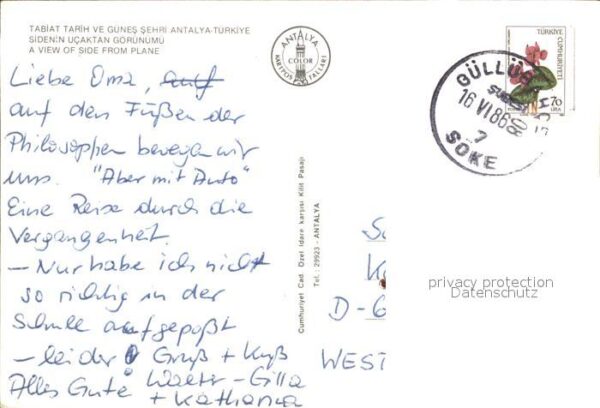 TABİAT TARİH VE GÜNEŞ ŞEHRİ ANTALYA-TÜRKİYE
SİDENİN UÇAKTAN GÖRÜNÜMÜ
A VIEW OF SIDE FROM PLANE
ANTALYA
COLOR
KARTPOSTALLARI
TÜRKİYE
CUMHURİYETİ
70
LIRA
GÜLLÜB
16 VI 86
7
SÖKE
Liebe Oma, auf
auf den Füßen der
Philosophen bewegen wir
uns. "Aber mit Auto"
Eine Reise durch die
Vergangenheit.
- Nur habe ich nicht
so richtig in der
Schule aufgepaßt
- leider! Gruß + Kuß
Alles Gute Walter - Gilla
+ Katharina
Cumhuriyet Cad. Özel İdare karşısı Kilit Pasajı
Tel.: 29923 - ANTALYA
D-6
WEST
privacy protection
Datenschutz